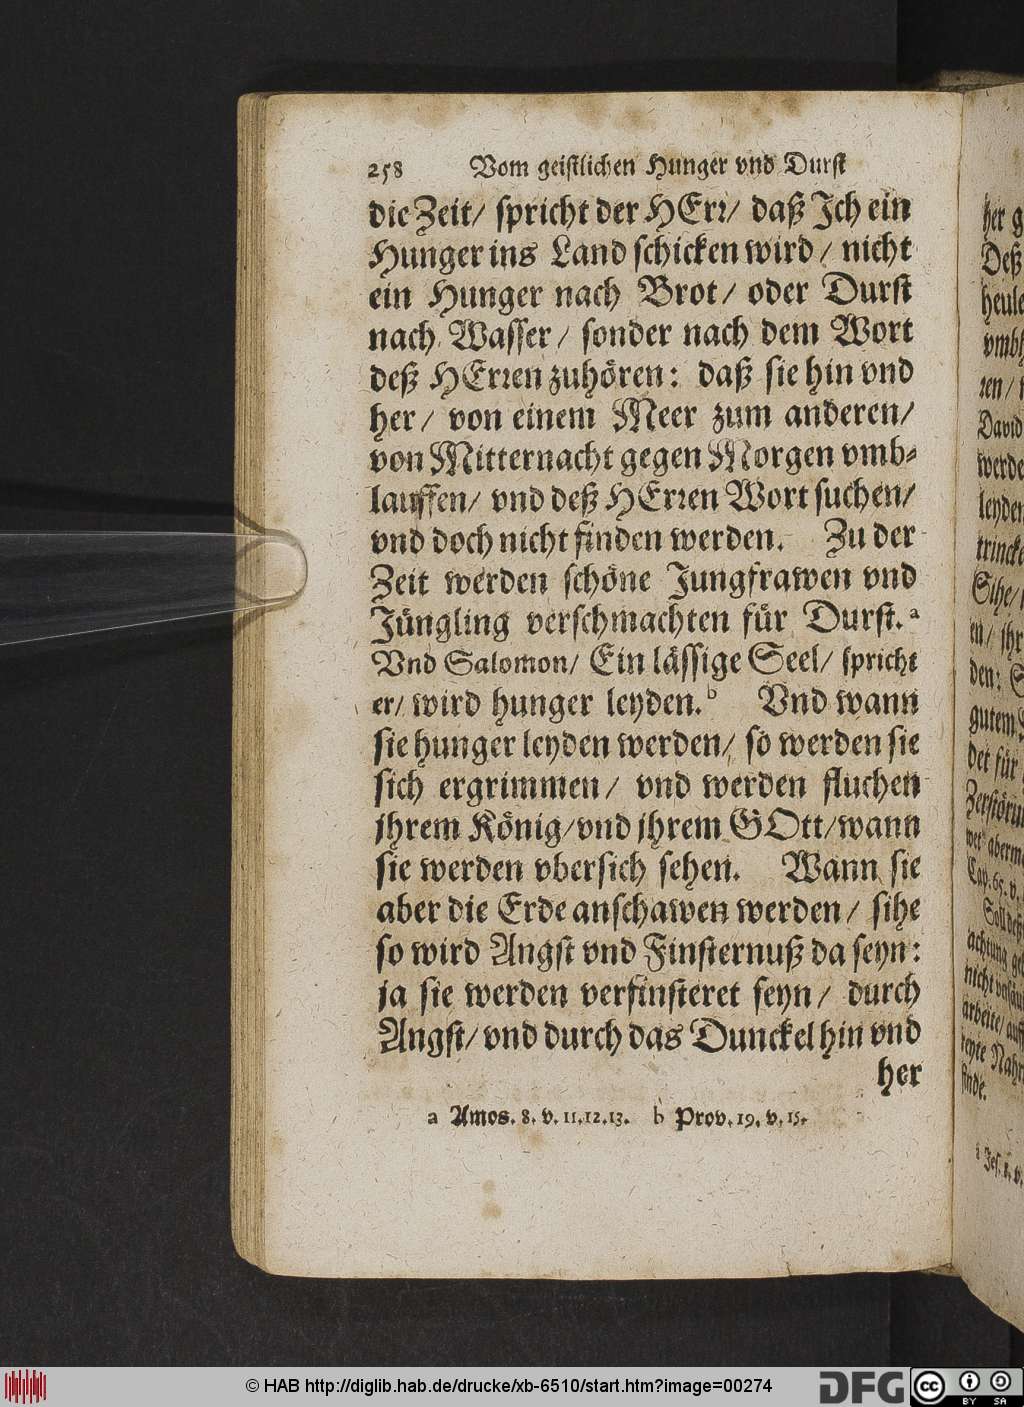 258 Vom geistlichen Hunger vnd Durst
die Zeit/ spricht der HErr/ daß Jch ein
Hunger ins Land schicken wird/ nicht
ein Hunger nach Brot/ oder Durst
nach Wasser/ sonder nach dem Wort
deß HErren zuhören: daß sie hin vnd
her/ von einem Meer zum anderen/
von Mitternacht gegen Morgen vmb-
lauffen/ vnd deß HErren Wort suchen/
vnd doch nicht finden werden. Zu der
Zeit werden schöne Jungfrawen vnd
Jüngling verschmachten für Durst. a
Vnd Salomon/ Ein lässige Seel/ spricht
er/ wird hunger leyden. b Vnd wann
sie hunger leyden werden/ so werden sie
sich ergrimmen/ vnd werden fluchen
jhrem König/ vnd jhrem GOtt/ wann
sie werden vbersich sehen. Wann sie
aber die Erde anschawen werden/ sihe
so wird Angst vnd Finsternuß da seyn:
ja sie werden verfinsteret seyn/ durch
Angst/ vnd durch das Dunckel hin vnd
her
a Amos. 8. v. 11.12.13. b Prov. 19. v. 15.
her
Deß
heule
vmbh
ren/
David
werde
leyden
trincke
Sihe/
en/ jhr
den:
gutem
det für
Zerstöru
wer aberm
Cap. 65. v.
Soll deß
achtung
nicht
arbeite/ auff
finde.
© HAB http://diglib.hab.de/drucke/xb-6510/start.htm?image=00274
DFG
cc
BY SA